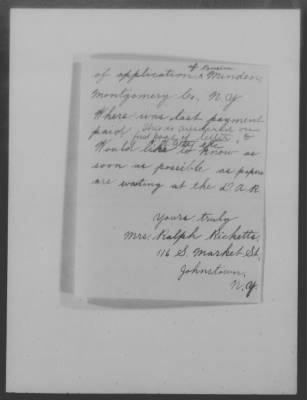 of pension
of application & Minden,
Montgomery Co, N.Y
Where was last payment
paid This is answered on
first page of letter
Would like to know as
soon as possible as papers
are waiting at the D.A.R
Yours truly
Mrs. Ralph Ricketts,
116 S. Market St,
Johnstown,
N.Y.